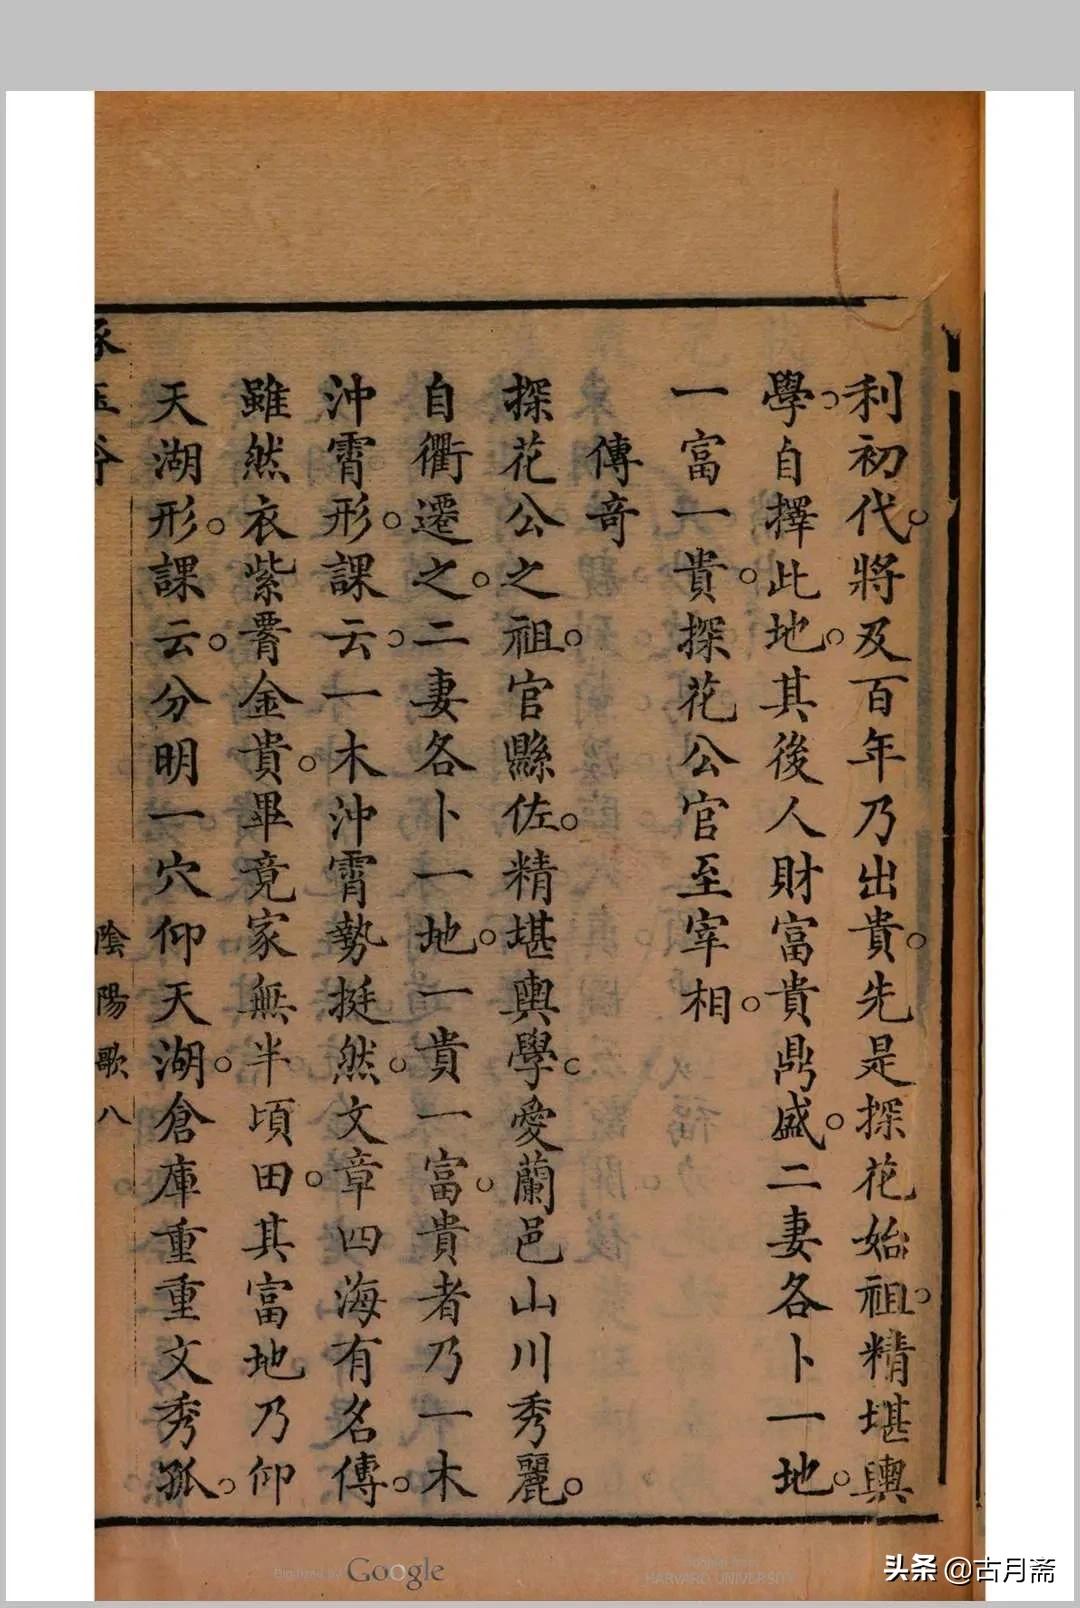 利初代。將及百年乃出貴。先是探花始祖。精堪輿
學。自擇此地。其後人財富貴鼎盛。二妻各卜一地。
一富一貴。探花公官至宰相。
傳奇
探花公之祖。官縣佐。精堪輿學。愛蘭邑山川秀麗。
自衢遷之。二妻各卜一地。一貴一富。貴者乃一木
沖霄形。課云。一木沖霄勢挺然。文章四海有名傳。
雖然衣紫金貴。畢竟家無半頃田。其富地乃仰
天湖形。課云。分明一穴仰天湖。倉庫重重文秀孤。
陰陽歌 八
Digitized by Google
Original from
HARVARD UNIVERSITY
头条 @古月斋